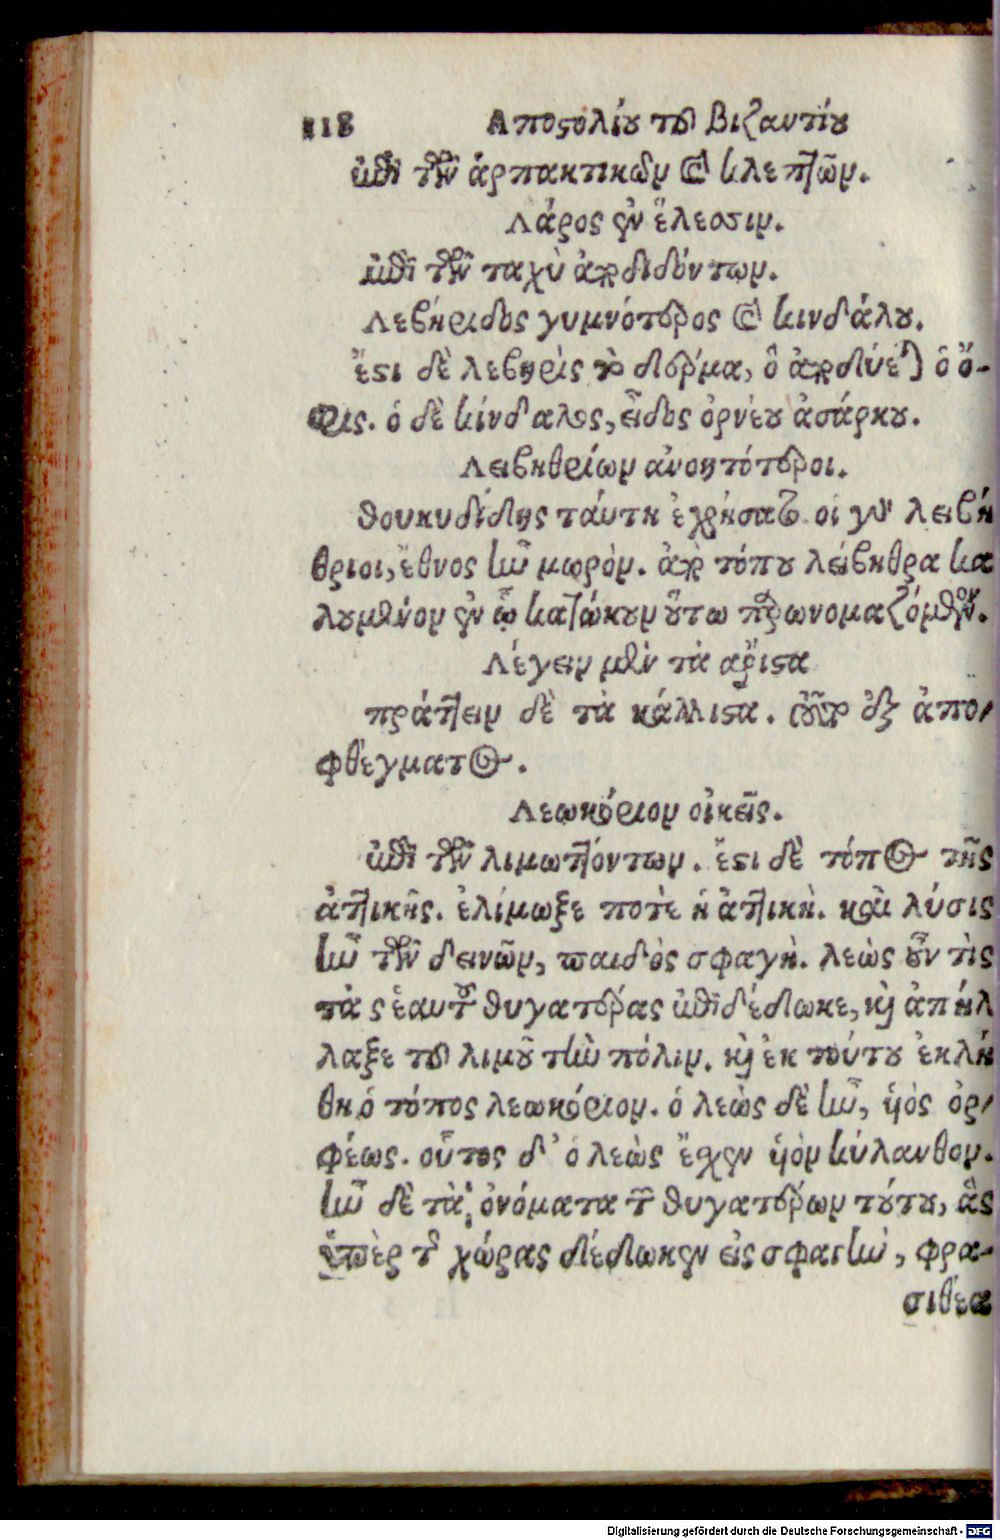 118 Αποστολίου τοῦ Βιζαντίου
ἐπὶ τῶν ἁρπακτικῶν καὶ κλεπτῶν.
Λάρος ἐν ἕλεσσιν.
ἐπὶ τῶν ταχὺ ἀποδιδόντων.
Λεβηρίδος γυμνότερος καὶ κινδάλου.
ἔστι δὲ λεβηρὶς τὸ δέρμα, ὃ ἀποδύεται ὁ ὄ-
φις. ὁ δὲ κίνδαλος, εἶδος ὀρνέου ἀσάρκου.
Λειβηθρίων ἀνοητότεροι.
Θουκυδίδης τάυτη ἐχρήσατο. οἱ γὰρ λειβή
θριοι, ἔθνος ἦν μωρὸν. ἀπὸ τόπου λείβηθρα κα
λουμένον ἐν ᾧ κατώκουν οὕτω προσωνομαζόμενον.
Λέγειν μὲν τὰ αρἴστα
πράττειν δὲ τὰ κάλλιστα. οὗτος ἐξ ἀπο-
φθέγματος.
Λεωκόριον οἰκεῖς.
ἐπὶ τῶν λιμωττόντων. ἔστι δὲ τόπος τῆς
ἀττικῆς. ἐλίμωξε ποτὲ ἡ ἀττικὴ. καὶ λύσις
ἦν τῶν δεινῶν, παιδὸς σφαγὴ. λεὼς οὖν τὶς
τὰς ἑαυτοῦ θυγατέρας ἐπιδέδωκε, καὶ ἀπήλ
λαξε τοῦ λιμοῦ τὴν πόλιν. καὶ ἐκ τούτου ἐκλή
θη ὁ τόπος λεωκόριον. ὁ λεὼς δὲ ἦν, ὑὸς ὀρ-
φέως. οὗτος δ' ὁ λεὼς ἔσχεν ὑὸν κύλανθον.
ἦν δὲ τὰ ὀνόματα τῶν θυγατέρων τούτου, ἃς
ὑπὲρ τῆς χώρας δέδωκεν εἰς σφαγὴν, φρα-
σιθέα
Digitalisierung gefördert durch die Deutsche Forschungsgemeinschaft - DFG